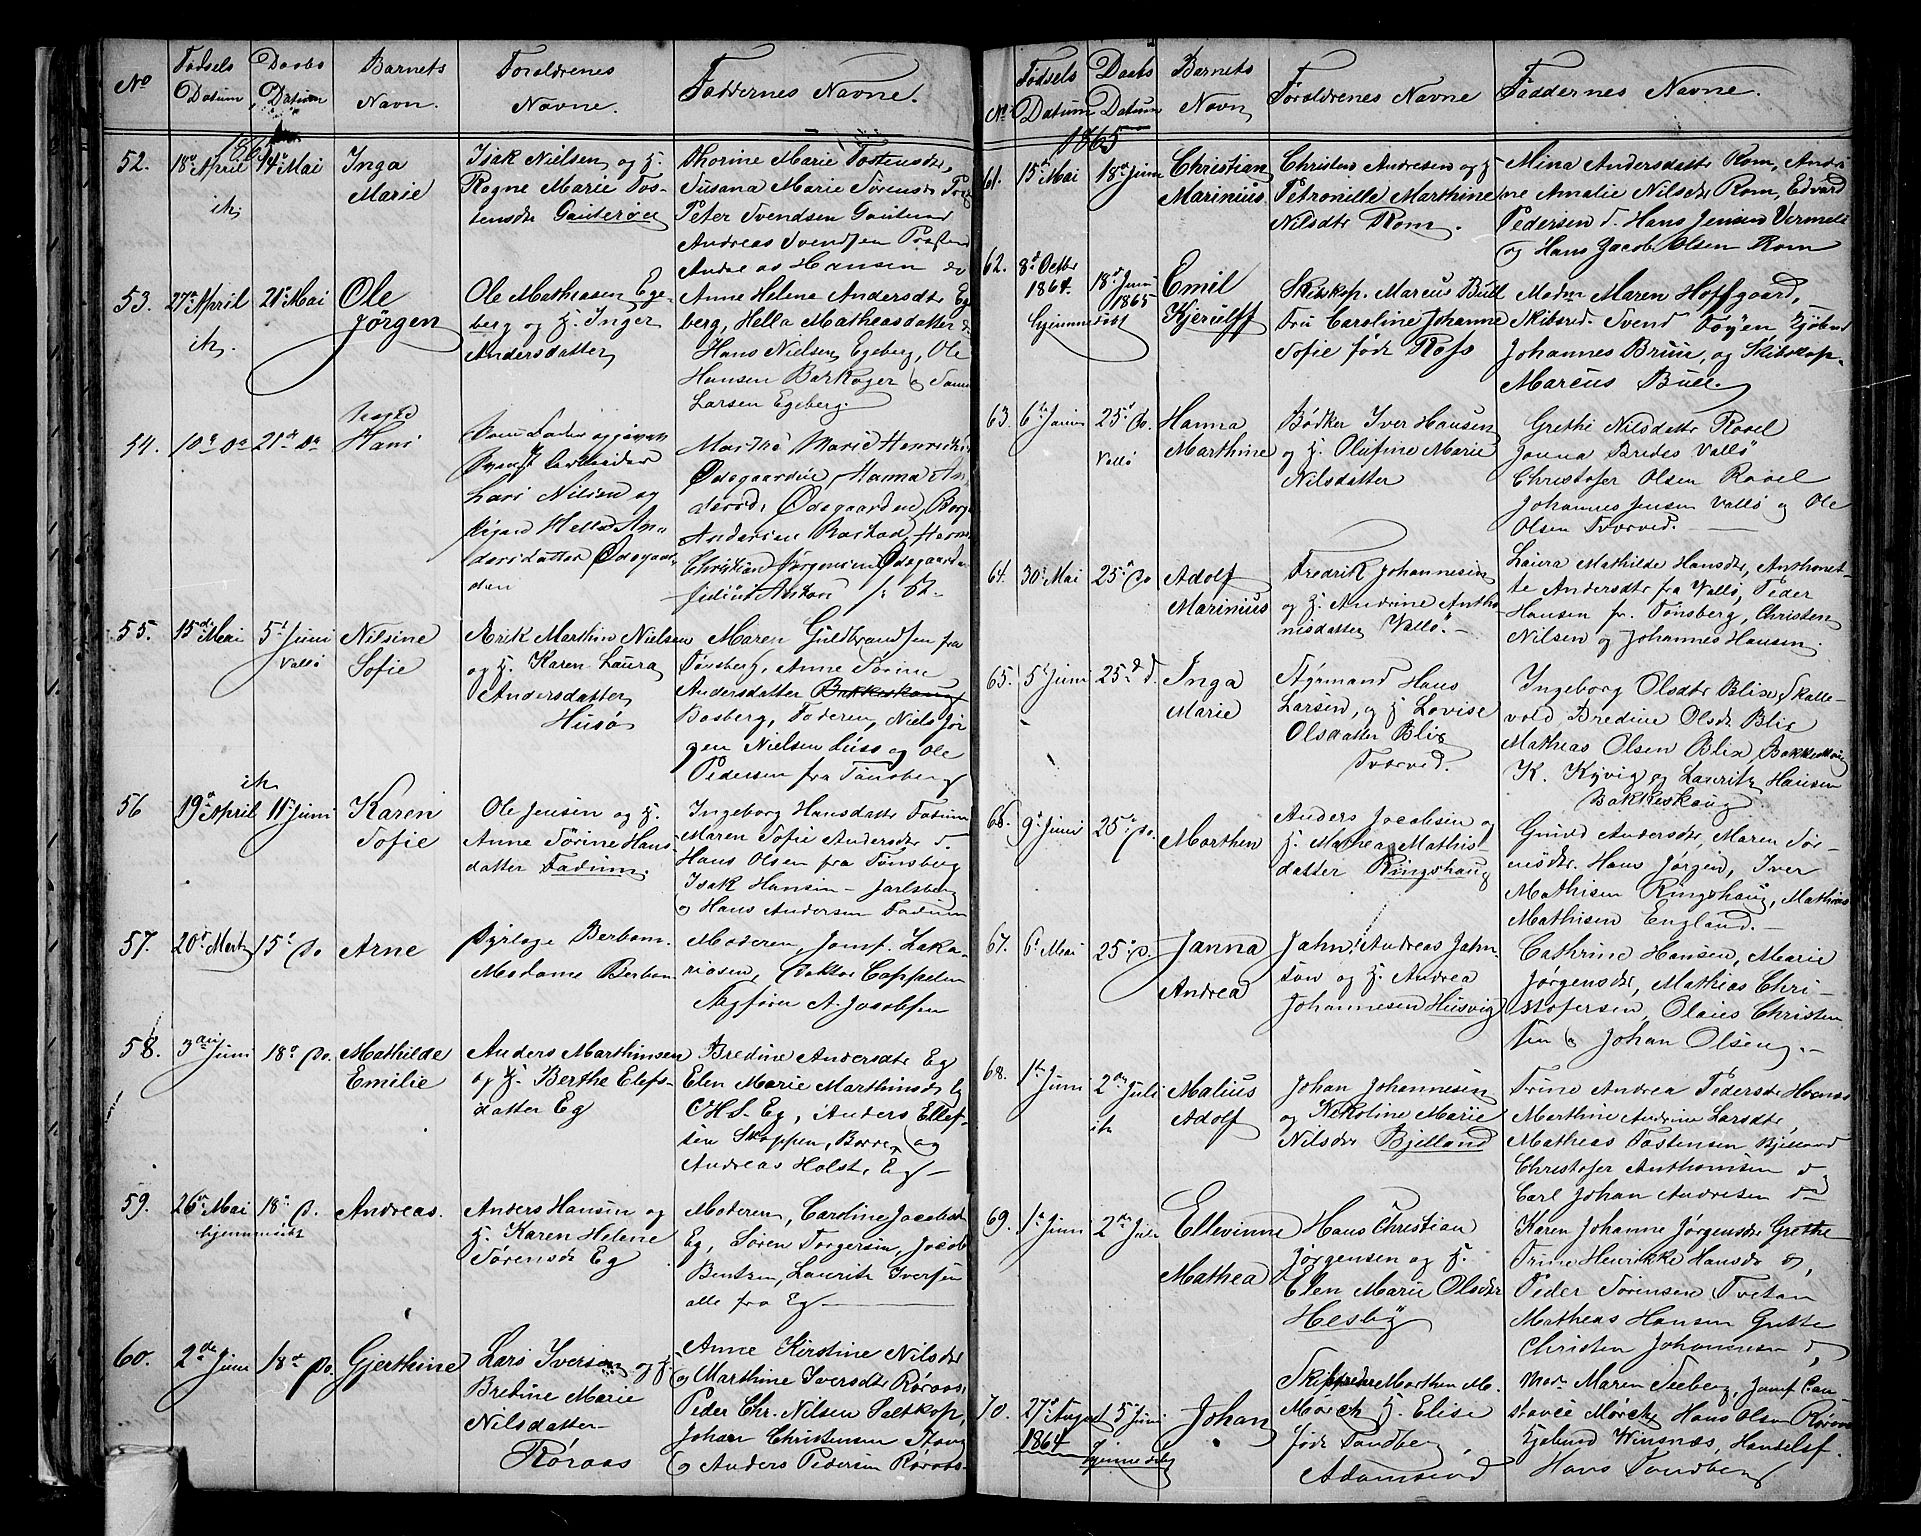 No
Fødsels Datum
Daabs Datum
Barnets Navn.
Foreldrenes Navne.
Faddernes Navne.
52. 18de April 14de Mai Inga Marie
Isak Nielsen og H.
Ragne Marie Tos-
tensdr Gauterøen
Thorine Marie Tostensdr,
Susana Marie Sørensdr
Peter Svendsen
Andreas Svendsen
Andreas Hansen do
53. 27de April 21de Mai Ole Jørgen
Ole Mathiasen Ege-
berg og H. Inger
Andersdatter
Anne Helene Andersdtr Eg
berg, Hella Matheasdatter
Hans Nielsen Egeberg, Ole
Hansen Barkager
Larsen Egeberg.
54. 10de do 21de do Hans
Lars Nilsen og
Pigen Hella An-
dersdatter Ødegaar-
den
Marthe Marie Henriks
Ødegaarden, Hanna An
dersd. Ødegaarden,
Andersen
Christian Jørgensen Ødegaarden
55. 15de Mai 5te Juni Nilsine Sofie
Vallø
Arik Marthin Nielsen
og H. Karen Laura
Andersdatter
Husø
Maren Guldbrandsen fra
Tønsberg, Anne Sorine
Andersdatter
Basberg, Faderen, Niels Jør
gen Nielsen Husø og Ole
Pedersen fra Tønsberg
56 19de April 11te Juni Karen Sofie
Ole Jensen og H.
Anne Sørine Hans
datter Fadum.
Ingeborg Hansdatter Fadum
Maren Sofie Andersdtr d.
Hans Olsen fra Tønsberg
Isak Hansen - Jarlsberg
og Hans Andersen Fadum
57. 20de Marts 15de do Arne
Byfoge Berbom.
Madame Berbom
Moderen, Jomf. Zaka-
riasen, Doktor Cappelen
A. Jacobsen
58. 3die Juni 18de do. Mathilde Emilie
Anders Marthinsen
og H. Berthe Elefs-
datter Eg
Bredine Andersdtr Eg
Elen Marie Marthinsdr Eg
C.H.S. Eg, Anders Ellef-
sen Skoppen, Borre, og
Andreas Holst, Eg
59. 26de Mai 18de d. Andreas.
hjemmedøbt
Anders Hansen og
H. Karen Helene
Sørensdr Eg
Moderen, Caroline Jacobsdr
Eg, Søren Torgersen, Jacob
Bentsen, Lauritz Iversen
alle fra Eg
60. 2den Juni 18de do. Gjerthine
Lars Iversen og H.
Bredine Marie
Nilsdatter
Røraas
Anne Kirstine Nilsdtr
og Marthine Iversdtr Røraas,
Peder Chr. Nilsen Saltkop,
Johan Christensen
og Anders Pedersen Røraas
No
Fødsels Datum
Daabs Datum
Barnets Navn
Foreldrenes Navne
Faddernes Navne.
1865
61. 15de Mai 18de Juni Christian Marinius
Christen Andresen og H
Petronille Marthine
Nilsdtr Rom.
Mina Andersdatter Rom, Andri
ne Amalie Nilsdtr Rom, Edvard
Pedersen d. Hans Jensen Vermeli
og Hans Jacob Olsen Rom
62. 8de Octbr 1864. 18de Juni 1865 Emil Kjerulff
hjemmedøbt
Skibskap. Marcus Bull
Fru Caroline Johanne
Sofie født Rofs
Madm Maren Hoffgaard,
Skibsred. Svend Føyen, Kjøbmd
Johannes Bruu, og Skibskap.
Marcus Bull.
63. 6te Juni 25de do. Hanna Marthine
Vallø
Bødker Iver Hansen
og H. Olufine Marie
Nilsdatter
Grethe Nilsdatter Ravel
Janna Bredes Vallø
Christofer Olsen Ravel
Johannes Jensen Vallø og Ole
Olsen Tværved.
64. 30te Mai 25de do Adolf Marinius
Fredrik Johannesen
og H. Andrine Antho
nisdatter Vallø.
Laura Mathilde Hansdtr, Anthonet-
te Andersdtr fra Vallø, Peder
Hansen fr. Tønsberg, Christen
Nilsen og Johannes Hansen.
65. 5te Juni 25de d. Inga Marie
Styrmand Hans
Larsen, og H. Lovise
Olsdatter Blix
Tværved.
Ingeborg Olsdtr Blix, Skalle-
vold, Bredine Olsdr Blix
Mathias Olsen Blix, Bakkeskoug
K. Kjvig og Lauritz Hansen
Bakkeskoug
66. 9de Juni 25de do. Marthen
Anders Jacobsen og
H. Mathea Mathis-
datter Ringshaug
Gunild Andersdtr, Maren Sør-
ensdtr. Hans Jørgen, Iver
Mathisen Ringshaug, Mathias
Mathisen England.
67. 6te Mai 25de do. Janna Andrea
Jahn Andreas Jahn-
sen og H. Andrea
Johannesen Husvig
Cathrine Hansen, Marie
Jørgensdtr, Mathias Chri-
stofersen, Olaus Christen
sen og Johan Olsen
68. 1te Juni 2den Juli Malius Adolf
Johan Johannesen
og Nekoline Marie
Nilsdtr Bjelland
Trine Andrea Pedersdr
Marthine Andrine Larsdtr,
Mathias Tostensen Bjelland
Christofer Anthonisen d
Carl Johan Andresen do
69. 1te Juni 2den Juli Ellevinne Mathea
Hans Christian
Jørgensen og H.
Elen Marie Olsdtr
Hesby
Karen Johanne Jørgensdtr Grette
Trine Henrikke Hansdr d,
Peder Sørensen Tvetan
Mathias Hansen Grette
Christen Johannesen d
70. 27de August 1864 5te Juni Johan
hjemmedøbt
Skipper Marthen M.
Morch H. Elise
født Sandberg,
Adamsrød
Mad. Maren Seeberg, Jomf. Gu-
stave Mørch, Hans Olsen Røraas
Kjøbmd Winsnæs, Handelsf.
Hans Sandberg